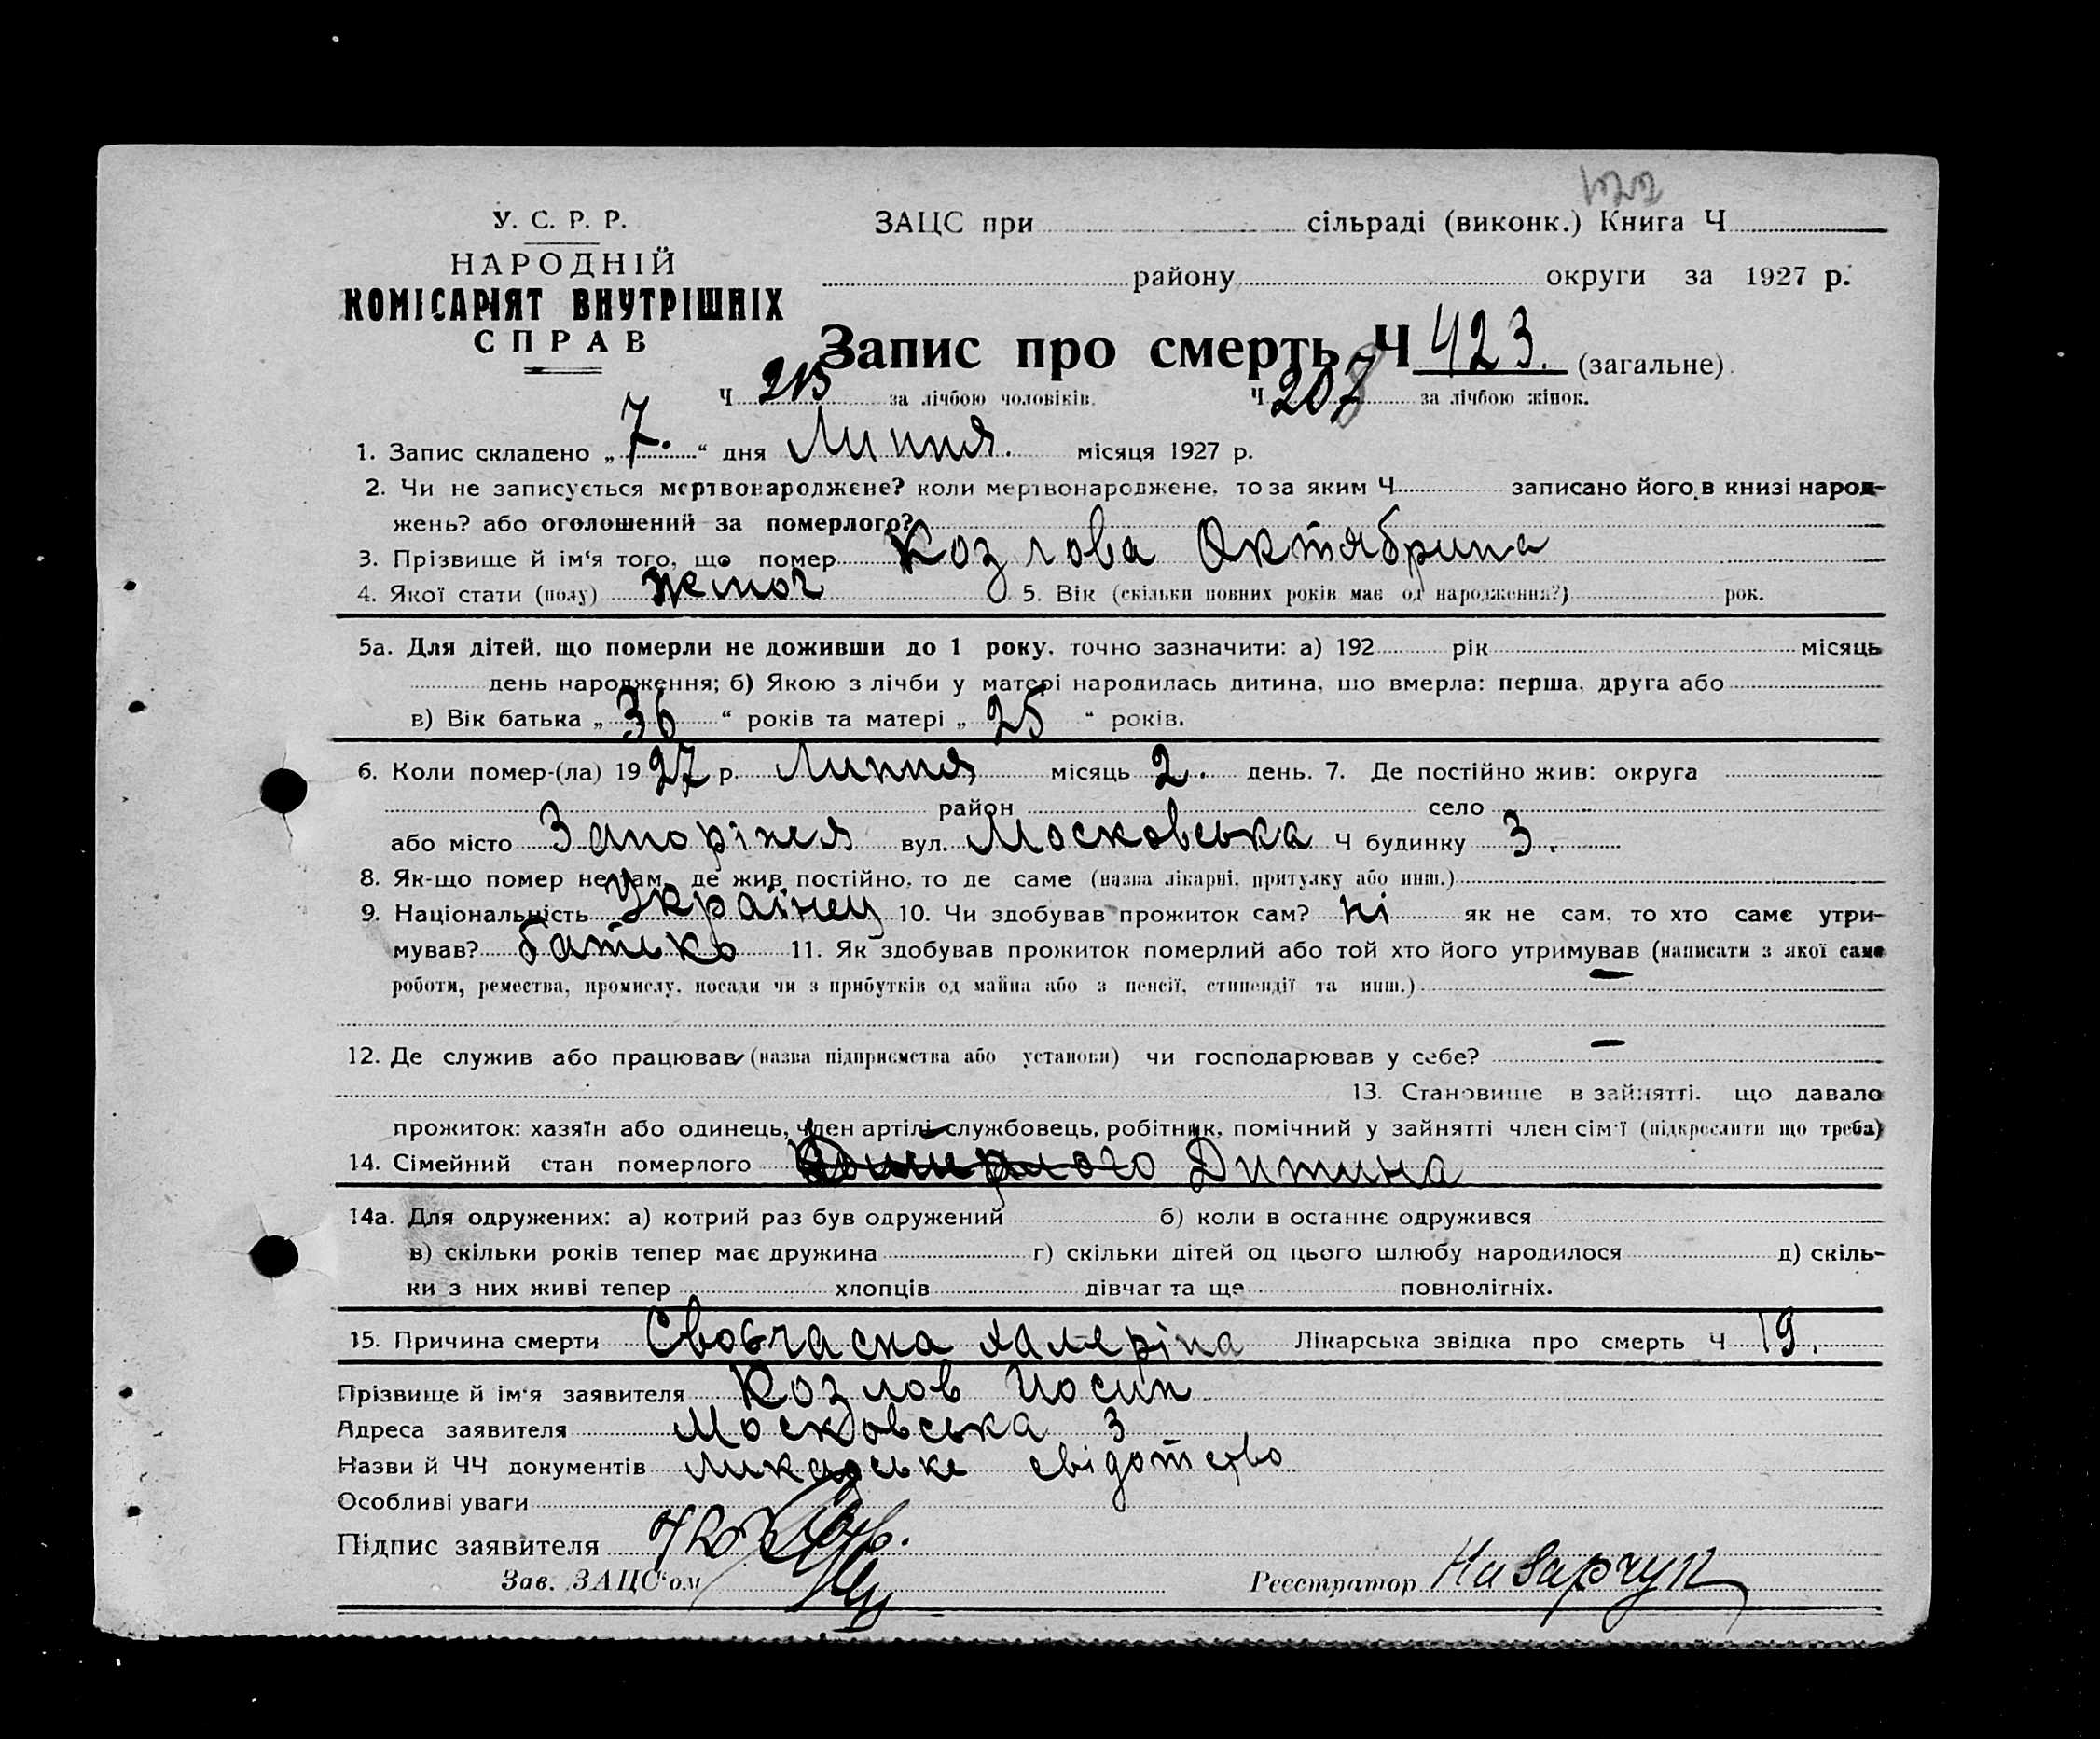 122
У. С. Р. Р.
НАРОДНІЙ
КОМІСАРІЯТ ВНУТРІШНІХ
СПРАВ
ЗАЦС при сільраді (виконк.) Книга Ч
району округи за 1927 р.
Запис про смерть Ч 423. (загальне).
Ч 215 за лічбою чоловіків. Ч 207 за лічбою жінок.
1. Запис складено „ 7. “ дня Липня. місяця 1927 р.
2. Чи не записується мертвонароджене? коли мертвонароджене, то за яким Ч записано його в книзі народ-
жень? або оголошений за померлого?
3. Прізвище й ім‘я того, що помер Козлова Октябрина
4. Якої стати (полу) жіноч 5. Вік (скільки повних років має од народження?) рок.
5а. Для дітей, що померли не доживши до 1 року, точно зазначити: а) 192 рік місяць
день народження; б) Якою з лічби у матері народилась дитина, що вмерла: перша, друга або
в) Вік батька „ 36 “ років та матері „ 25 “ років.
6. Коли помер-(ла) 1927 р. Липня місяць 2. день. 7. Де постійно жив: округа
район село
або місто Запоріжжя вул. Московська Ч будинку 3.
8. Як-що помер не там, де жив постійно, то де саме (назва лікарні, притулку або инш.)
9. Національність Українец 10. Чи здобував прожиток сам? ні як не сам, то хто саме утри-
мував? батько 11. Як здобував прожиток померлий або той хто його утримував (написати з якої саме
роботи, ремества, промислу, посади чи з прибутків од майна або з пенсії, стипендії та инш.) —
12. Де служив або працював (назва підприємства або установи) чи господарював у себе? —
13. Становище в зайнятті, що давало
прожиток: хазяїн або одинець, член артілі, службовець, робітник, помічний у зайнятті член сім‘ї (підкреслити що треба)
14. Сімейний стан померлого Дитина
14а. Для одружених: а) котрий раз був одружений б) коли в останнє одружився
в) скільки років тепер має дружина г) скільки дітей од цього шлюбу народилося д) скіль-
ки з них живі тепер хлопців дівчат та ще повнолітніх.
15. Причина смерти Лікарська звідка про смерть Ч 19.
Прізвище й ім‘я заявителя Козлов Йосип
Адреса заявителя Московська 3
Назви й ЧЧ документів ликарське свідотство
Особливі уваги
Підпис заявителя
Зав. ЗАЦС‘ом Реєстратор Назарчук